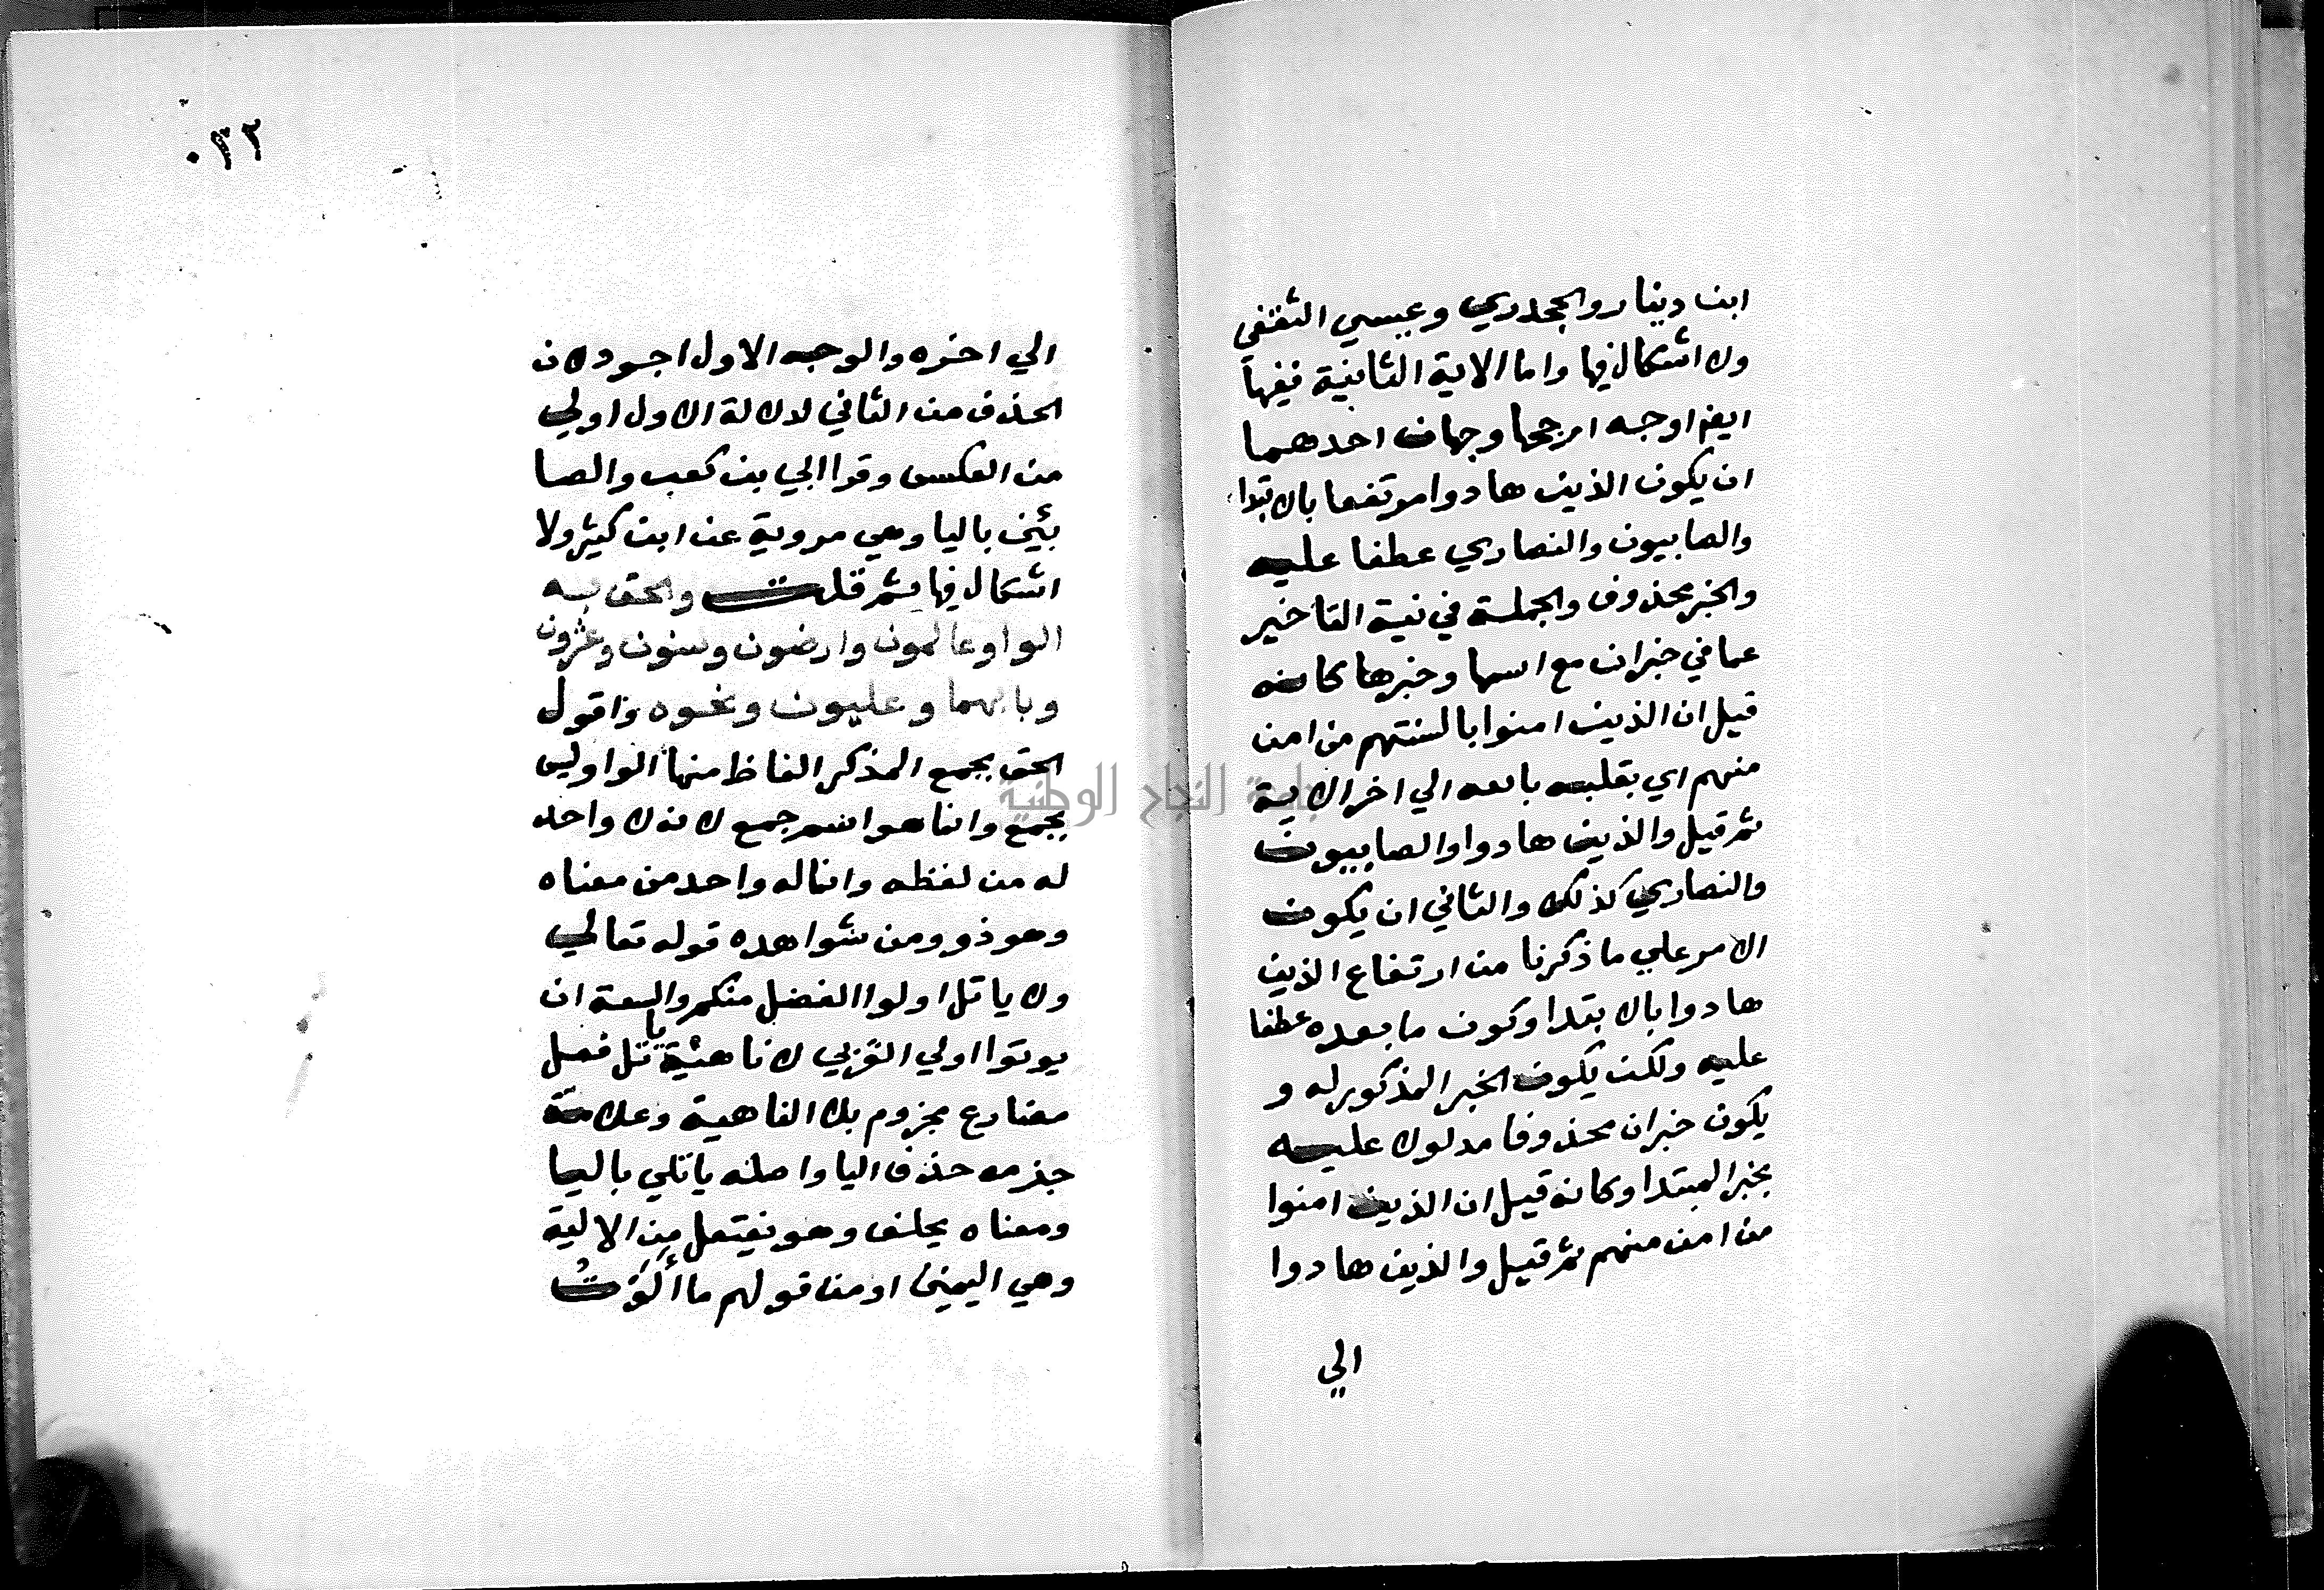 ابن دينار والجحدري وعيسي الثقفي
ولا اشكال فيها واما الاية الثانية ففيها
ايضا اوجه ارجحها وجهان احدهما
ان يكون الذين هادوا مرتفعا بالابتداء
والصابيون والنصاري عطفا عليه
والخبر محذوف والجملة في نية التاخير
عما في خبر ان مع اسمها وخبرها كانه
قيل ان الذين امنوا بالسنتهم من امن
منهم اي بقلبه بالله الي اخر الاية
ثم قيل والذين هادوا والصابيون
والنصاري كذلك والثاني ان يكون
الامر علي ما ذكرنا من ارتفاع الذين
هادوا بالابتدا وكون ما بعده عطفا
عليه ولكن يكون الخبر المذكور له و
يكون خبر ان محذوفا مدلولا عليه
بخبر المبتدا وكانه قيل ان الذين امنوا
من امن منهم ثم قيل والذين هادوا
الي
الي اخره والوجه الاول اجود لان
الحذف من الثاني لدلالة الاول اولي
من العكس وقرا ابي بن كعب والصا
بئين باليا وهي مروية عن ابن كثير ولا
اشكال فيها ثم قلت والحق به
الواو عالمون وارضون وسنون وعشرون
وبابهما وعليون ونحوه واقول
الحق بجمع المذكر الفاظ منها الوا وليس
بجمع وانما هو اسم جمع لانه لا واحد
له من لفظه وانما له واحد من معناه
وهو ذو ومن شواهده قوله تعالي
ولا ياتل اولوا الفضل منكم والسعة ان
يوتوا اولي القربي لا ناهية ياتل فعل
مضارع مجزوم بلا الناهية وعلامة
جزمه حذف اليا واصله ياتلي باليا
ومعناه يحلف وهو يفتعل من الالية
وهي اليمين او من قولهم ما أَلَوْتُ
جامعة النجاح الوطنية